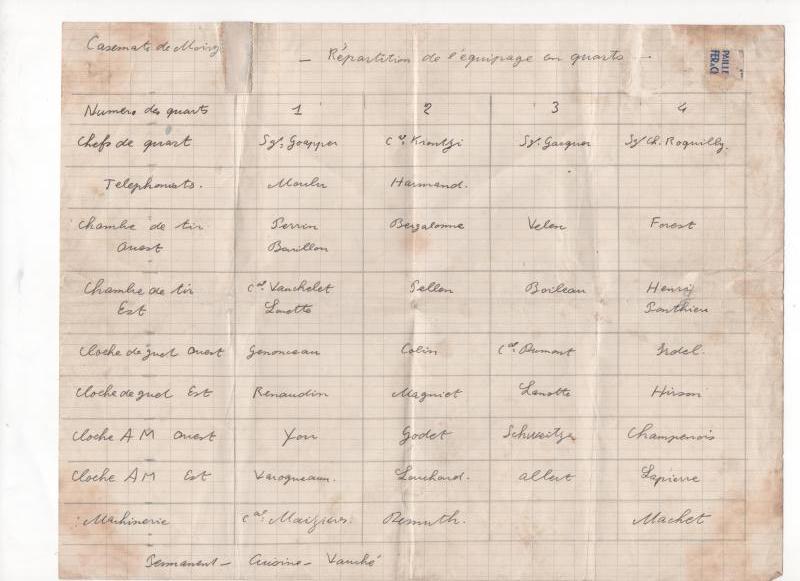 Casemate de Moiry
— Répartition de l'équipage en quarts —
PAILLE FER
Numero des quarts 1 2 3 4
Chefs de quart Sgt. Goepper Cal. Krentzi Sgt. Gacquer Sgt Ch. Roquilly.
Telephonists. Moulu Harmand.
Chambre de tir Perrin Bergalonne Velen Forest
Ouest Barillon
Chambre de tir Cal. Vauchelet Pellon Boileau Henry
Est Lorette Ponthieu
Cloche de guet Ouest Genonceau Colin Cal. Dumont Irdel.
Cloche de guet Est Renaudin Magniet Lanotte Hirson
Cloche A M Ouest Yon Godet Schweitze Champenois
Cloche AM Est Varoqueaux. Louchard. allert Lapierre
Machinerie Cal Maizières. Remuth. Machet
Permanent — Cuisine — Vauché